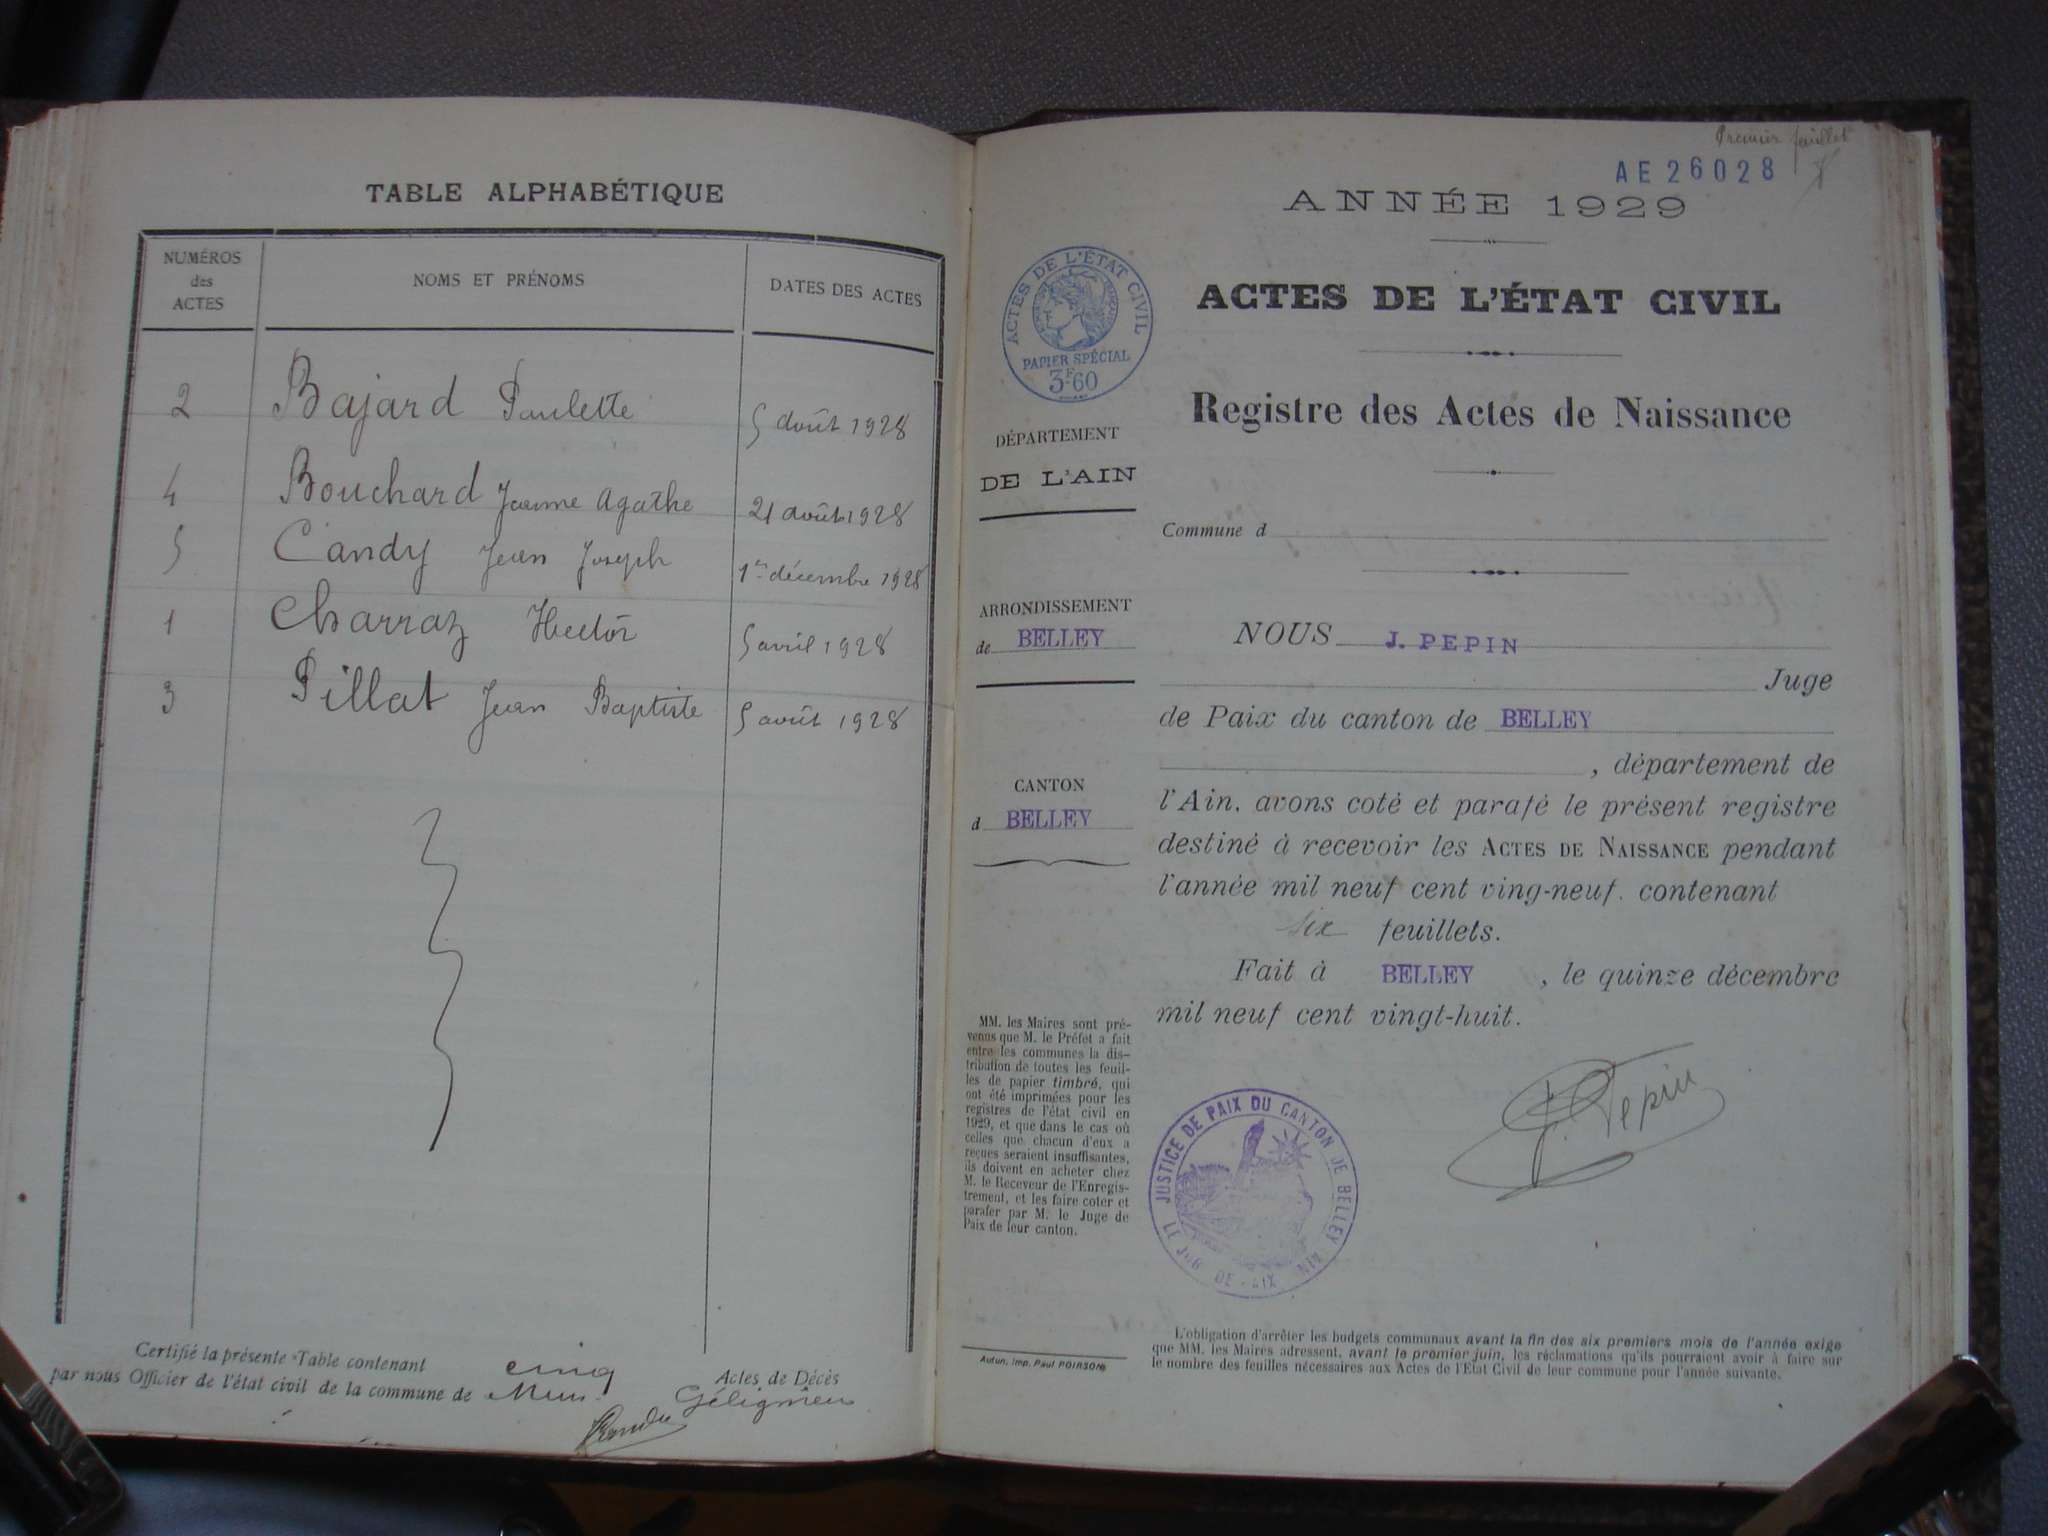 TABLE ALPHABÉTIQUE
NUMÉROS des ACTES
NOMS ET PRÉNOMS
DATES DES ACTES
2 Bajard Paulette 5 août 1928
4 Bouchard Jeanne Agathe 21 août 1928
5 Candy Jean Joseph 1er décembre 1928
1 Charraz Hector 5 avril 1928
3 Pillat Jean Baptiste 5 août 1928
Certifié la présente Table contenant cinq Actes de Décès
par nous Officier de l'état civil de la commune de Murs Gélignieu
Premier feuillet
AE 26028
ANNÉE 1929
ACTES DE L'ÉTAT CIVIL
PAPIER SPÉCIAL
3F60
ACTES DE L'ÉTAT CIVIL
Registre des Actes de Naissance
DÉPARTEMENT
DE L'AIN
ARRONDISSEMENT
de BELLEY
CANTON
d BELLEY
Commune d
NOUS J. PEPIN
Juge
de Paix du canton de BELLEY
, département de
l'Ain, avons coté et parafé le présent registre
destiné à recevoir les ACTES DE NAISSANCE pendant
l'année mil neuf cent ving-neuf. contenant
six feuillets.
Fait à BELLEY, le quinze décembre
mil neuf cent vingt-huit.
MM. les Maires sont pré-
venus que M. le Préfet a fait
entre les communes la dis-
tribution de toutes les feuil-
les de papier timbré, qui
ont été imprimées pour les
registres de l'état civil en
1929, et que dans le cas où
celles que chacun d'eux a
reçues seraient insuffisantes,
ils doivent en acheter chez
M. le Receveur de l'Enregis-
trement, et les faire coter et
parafer par M. le Juge de
Paix de leur canton.
J. Pepin
JUSTICE DE PAIX DU CANTON DE BELLEY AIN
Autun, Imp. Paul POIRSON
L'obligation d'arrêter les budgets communaux avant la fin des six premiers mois de l'année exige
que MM. les Maires adressent, avant le premier juin, les réclamations qu'ils pourraient avoir à faire sur
le nombre des feuilles nécessaires aux Actes de l'Etat Civil de leur commune pour l'année suivante.